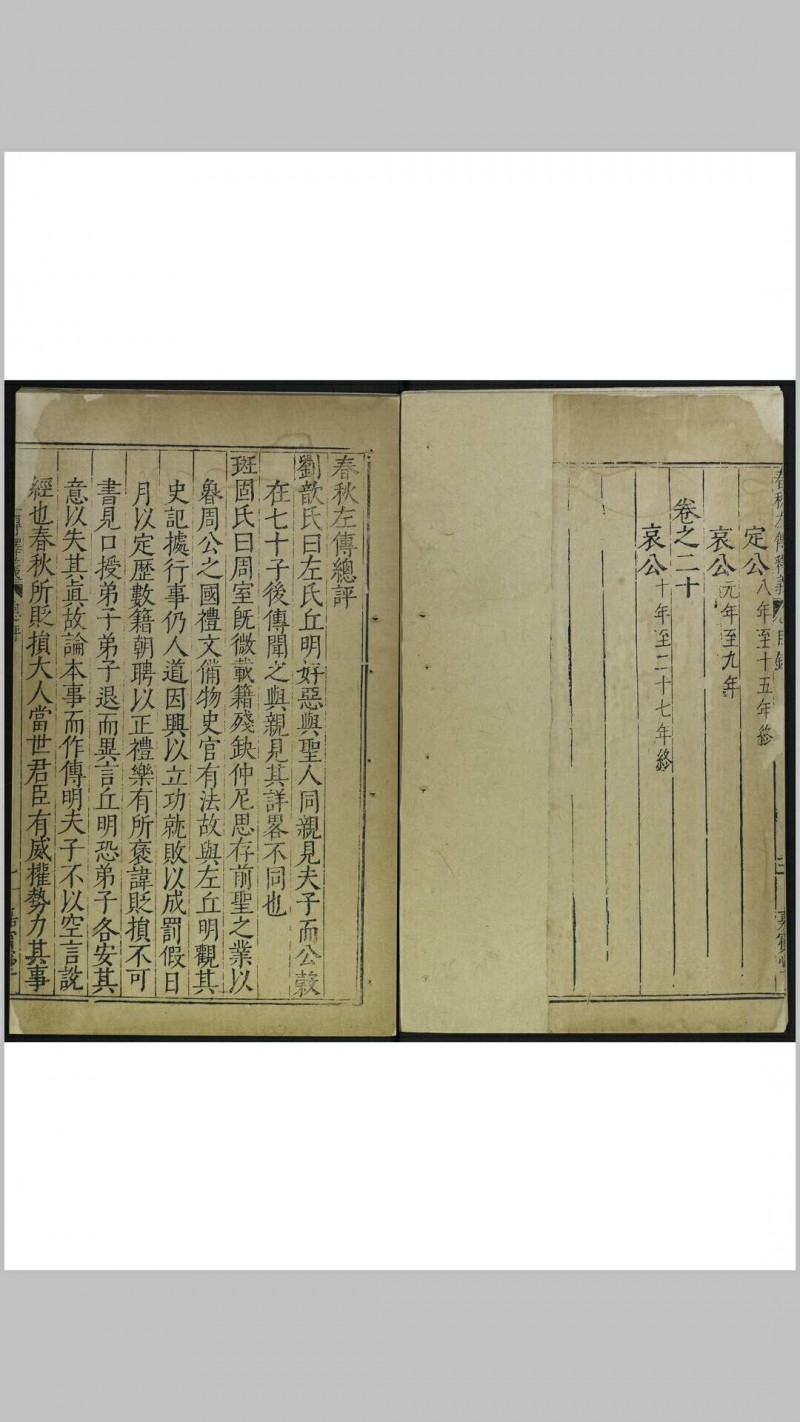 春秋左傳釋義
目錄
三
嘉賓堂
定公八年至十五年終
哀公元年至九年
卷之二十
哀公十年至二十七年終
春秋左傳總評
劉歆氏曰左氏丘明好惡與聖人同親見夫子而公穀
在七十子後傳聞之與親見其詳畧不同也
班固氏曰周室旣微載籍殘缺仲尼思存前聖之業以
魯周公之國禮文備物史官有法故與左丘明觀其
史記據行事仍人道因興以立功就敗以成罰假日
月以定歷數籍朝聘以正禮樂有所褒諱貶損不可
書見口授弟子弟子退而異言丘明恐弟子各安其
意以失其眞故論本事而作傳明夫子不以空言說
經也春秋所貶損大人當世君臣有威權勢力其事